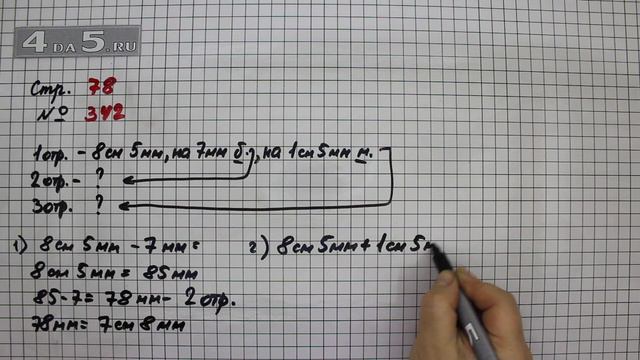 4DA5.RU
Стр. 78
№ 342
1 отр. - 8 см 5 мм, на 7 мм б., на 1 см 5 мм м.
2 отр. - ?
3 отр. ?
1) 8 см 5 мм - 7 мм =
8 см 5 мм = 85 мм
85-7 = 78 мм - 2 отр.
78 мм = 7 см 8 мм
2) 8 см 5 мм + 1 см 5 м